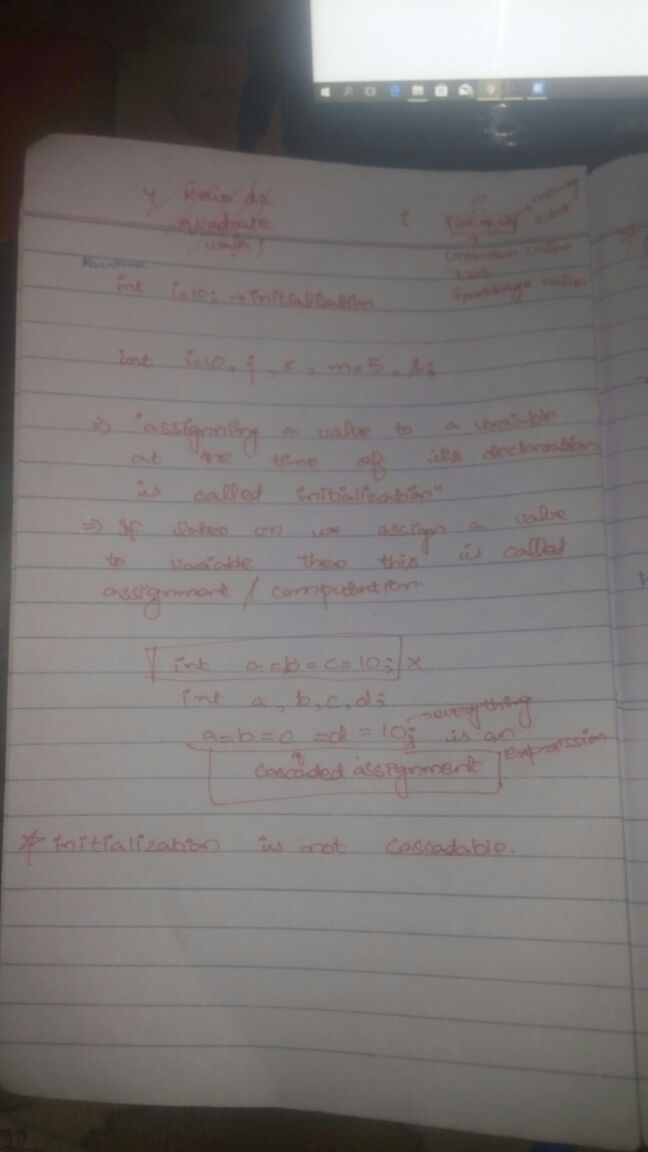 unknown value
Garbage value
int i=10; → initialization
int i=10, j, k, m=5, l;
⇒ "assigning a value to a variable
at the time of its declaration
is called initialization"
⇒ If later on we assign a value
to variable then this is called
assignment / computation.
int a=b=c=10; x
int a, b, c, d;
a=b=c=d=10; → everything
is an
expression
cascaded assignment
* initialization is not cascadable.